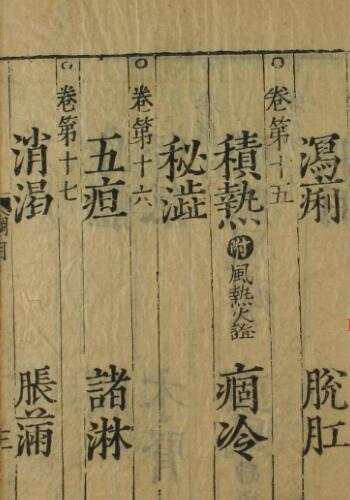 瀉痢 脫肛
卷第十五
積熱 附風熱火證 痼冷
秘澁
卷第十六
五疸 諸淋
卷第十七
消渴 脹滿